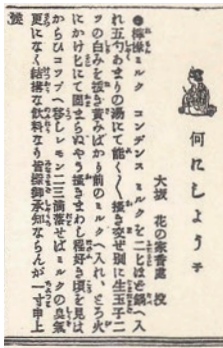 何にしよう
大坂 花の家香處 投
●檸檬ミルク コンデンスミルクを二匕ほど鍋へ入
れ五勺あまりの湯にて能く〱掻き交ぜ別に生玉子二
ツの白みを抜き黄みばかり前のミルクへ入れ、とろ火
にかけ匕にて固まらぬやう掻きまわし程好き頃を見は
からひコツプへ移しレモン二三滴落せばミルクの臭氣
更になく結搆な飲料なり皆樣御承知ならんが一寸申上
候